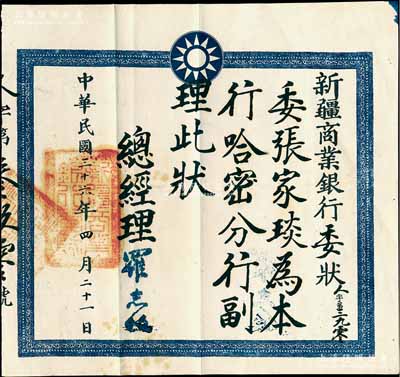 新疆商業銀行委狀
委張家琰為本
行哈密分行副
理此狀
總經理羅志
中華民國三十六年四月二十一日